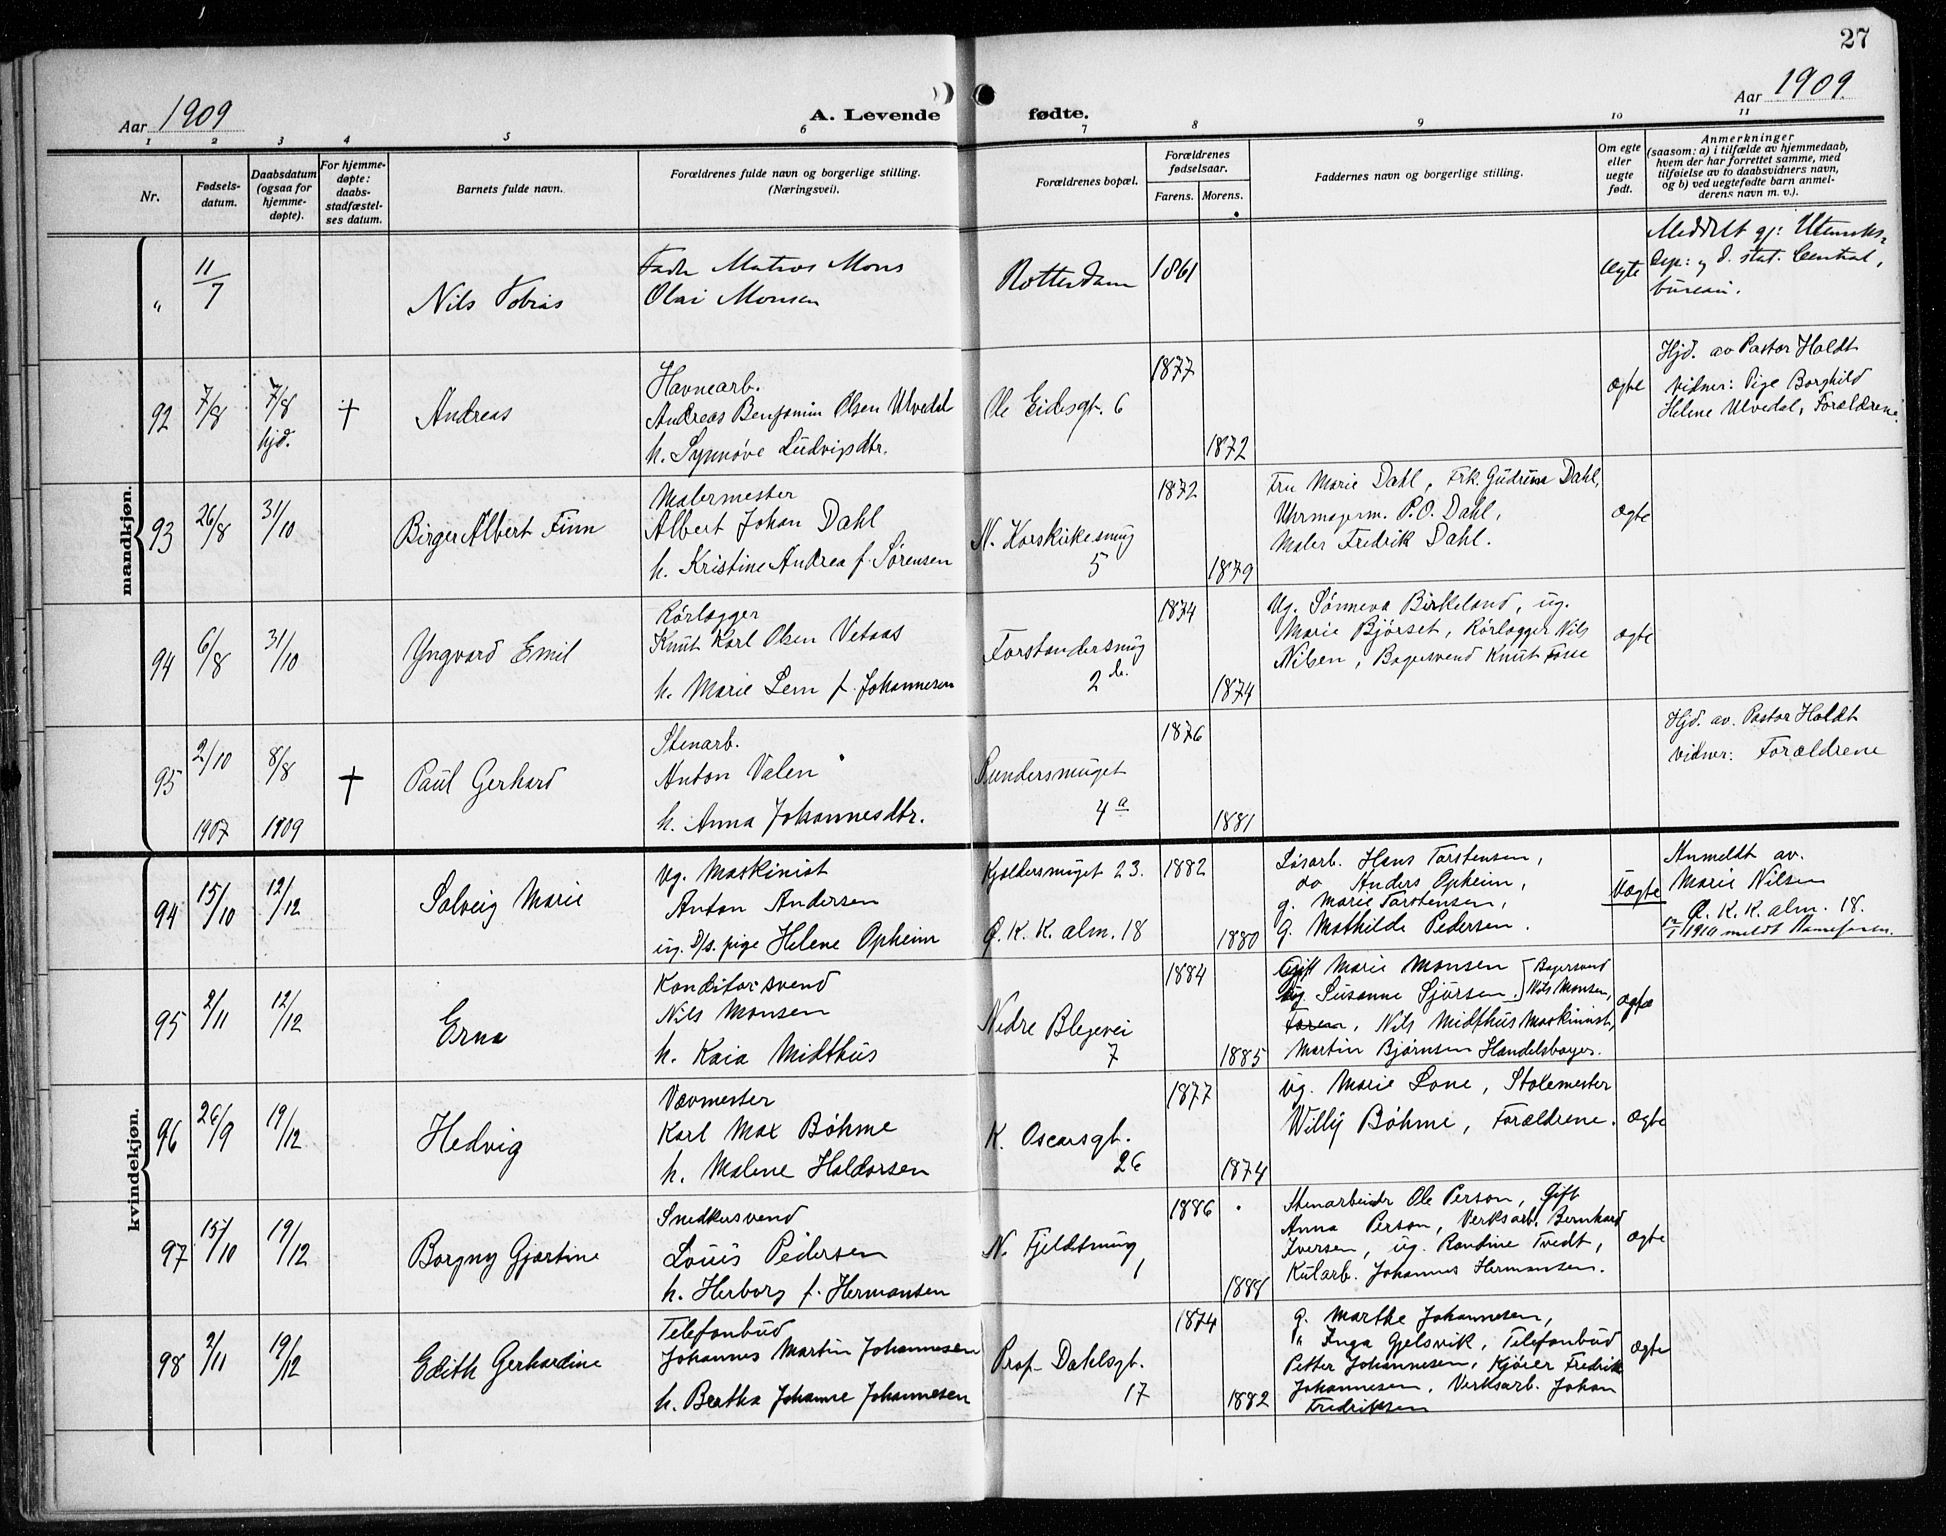 27
Aar 1909
A. Levende fødte.
Aar 1909
1 2 3 4 5 6 7 8 9 10 11
Nr.
Fødsels-
datum.
Daabsdatum
(ogsaa for
hjemme-
døpte).
For hjemme-
døpte:
daabs-
stadfæstel-
ses datum.
Barnets fulde navn.
Forældrenes fulde navn og borgerlige stilling.
(Næringsvei).
Forældrenes bopæl.
Forældrenes
fødselsaar.
Farens. Morens.
Faddernes navn og borgerlige stilling.
Om egte
eller
uegte
født.
Anmerkninger
(saasom: a) i tilfælde av hjemmedaab,
hvem der har forrettet samme, med
tilføielse av to daabsvidners navn,
og b) ved uegtefødte barn anmel-
derens navn m. v.).
mandkjøn.
"
11/7
Nils Tobias
Fader Matros Mons
Olai Monsen
Rotterdam
1861
Ægte
Meddelt gj: Utenriks-
dep: og d. stat. Central,
bureau.
92
7/8
7/8
hjd.
†
Andreas
Havnearb.
Andreas Benjamin Olsen Ulvedal
h. Synnøve Ludvigsdtr.
Ole Eidesgt. 6
1877
1872
Ægte
Hjd. av Pastor Holdt
vidner: Pige Borghild
Helene Ulvedal, Forældrene.
93
26/8
31/10
Birger Albert Finn
Malermester
Albert Johan Dahl
h. Kristine Andrea f. Sørensen
N. Korskirkesmug
5
1872
1879
Fru Marie Dahl, Frk. Gudrun Dahl,
Uhrmagerm. P.O. Dahl,
Maler Fredrik Dahl.
Ægte
94
6/8
31/10
Yngvard Emil
Rørlægger
Knut Karl Olsen Vetaas
h. Marie Lem f. Johannesen
Forstandersmug
2 b.
1874
1874
Ug. Sønneva Birkeland, ug.
Marie Bjørset, Rørlægger Nils
Nilsen, Bagersvend Knut Fosse
Ægte
95
2/10
1907
8/8
1909
†
Paul Gerhard
Stenarb.
Anton Valen
h. Anna Johannesdtr.
Rundersmuget
4 a
1876
1881
Hjd. av. Pastor Holdt
vidner: Forældrene
kvindekjøn.
94
15/10
12/12
Solveig Marie
ug. Maskinist
Anton Andersen
ug. D/s. pige Helene Opheim
Kjeldersmuget 23.
Q. K. K. alm. 18
1882
1880
Løsarb. Hans Torstensen,
do Anders Opheim,
g. Marie Torstensen,
g. Mathilde Pedersen.
Uægte
Anmeldt av.
Marie Nilsen
Q. K. K. alm. 18.
1910 meldt
95
2/11
12/12
Erna
Konditorsvend
Nils Monsen
h. Kaia Midthus
Nedre Blegevei
7
1884
1885
Gift Marie Monsen {Bagersvend
ug. Susanne Sjursen. {Nils Monsen,
Faren, Nils Midthus Maskinist,
Martin Bjørnsen Handelsbager.
Ægte
96
26/9
19/12
Hedvig
Vævmester
Karl Max Bøhme
h. Malene Haldorsen
K. Oscarsgt.
26
1877
1874
ug. Marie Lone, Stolemester
Willy Bøhme, Forældrene.
Ægte
97
15/10
19/12
Borgny Gjertine
Snedkersvend
Louis Pedersen
h. Herborg f. Hermansen
N. Fjeldsmug
1
1886
1888
Stenarbeider Ole Person, Gift
Anna Person, Verksarb. Bernhard
Iversen, ug. Randine Tvedt,
Kularb. Johannes Hermansen.
Ægte
98
2/11
19/12
Edith Gerhardine
Telefonbud
Johannes Martin Johannesen
h. Beatha Johanne Johannesen
Prof. Dahlsgt.
17
1874
1882
g. Marthe Johannesen,
" Inga Gjelsvik, Telefonbud
Petter Johannesen, Kjører Fredrik
Johannesen, Verksarb. Johan
Fredriksen
Ægte